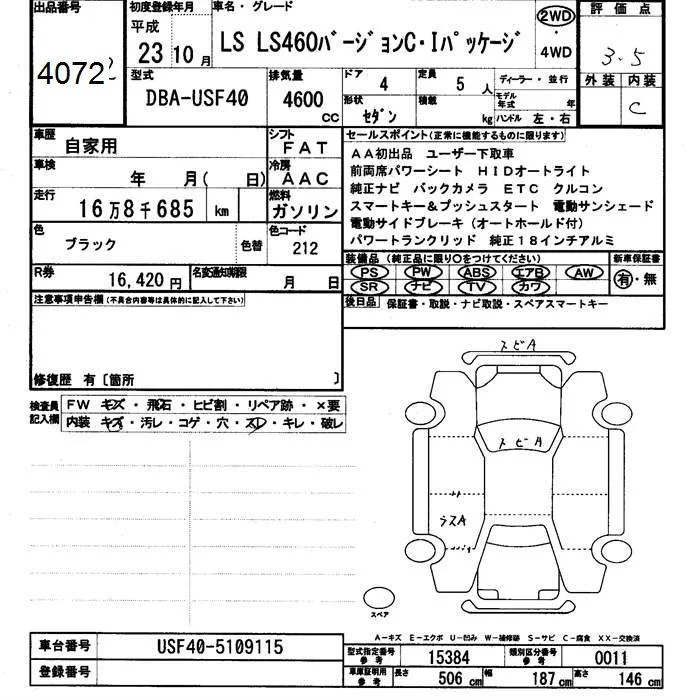 出品番号
4072
初度登録年月
平成
23 10 月
車名・グレード
LS LS460バージョンC・Iパッケージ
2WD
・
4WD
評価点
3.5
外装 内装
C
型式
DBA-USF40
排気量
4600
CC
ドア
4
定員
5 人
形状
セダン
積載
kg
ディーラー・並行
モデル年式 年
ハンドル 左・右
車歴
自家用
シフト
FAT
車検
年 月( 日)
冷房
AAC
走行
16万8千685 km
燃料
ガソリン
色
ブラック
色替
色コード
212
R券
16,420 円
名変通知期限
月 日
セールスポイント(正常に機能するものに限ります)
AA初出品 ユーザー下取車
前両席パワーシート HIDオートライト
純正ナビ バックカメラ ETC クルコン
スマートキー&プッシュスタート 電動サンシェード
電動サイドブレーキ(オートホールド付)
パワートランクリッド 純正18インチアルミ
装備品(純正品に限り○をつけてください)
PS PW ABS エアB AW
SR ナビ TV カワ
新車保証書
有・無
後日品 保証書・取説・ナビ取説・スペアスマートキー
注意事項申告欄(不具合内容等は具体的に記入して下さい)
修復歴 有〔箇所 〕
検査員記入欄
FW キズ・飛石・ヒビ割・リペア跡・×要
内装 キズ・汚レ・コゲ・穴・スレ・キレ・破レ
スビA
スビA
ラスA
スペア
A-キズ E-エクボ U-凹み W-補修跡 S-サビ C-腐食 XX-交換済
車台番号
USF40-5109115
登録番号
型式指定番号 参考
15384
類別区分番号 参考
0011
車庫証明用 参考
長さ 506 cm
幅 187 cm
高さ 146 cm